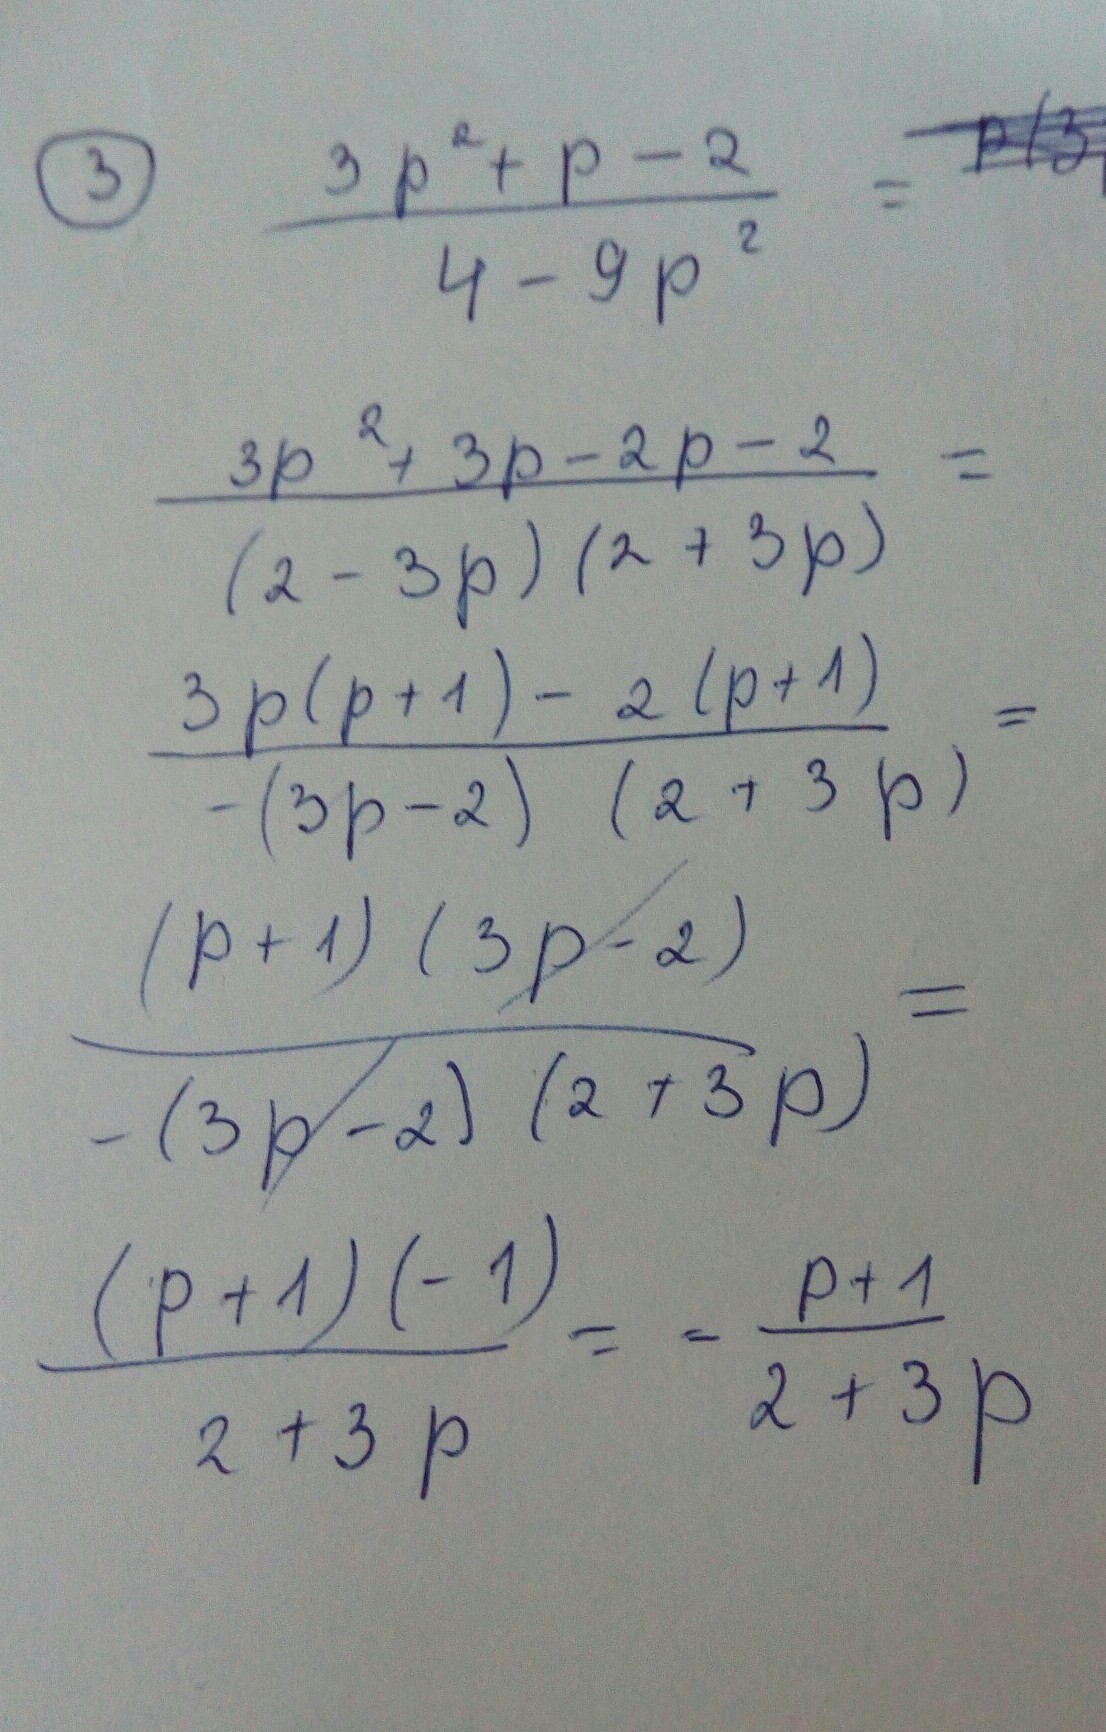 ③ 3p² + p - 2 =
4 - 9p²
3p² + 3p - 2p - 2 =
(2 - 3p) (2 + 3p)
3p(p+1) - 2(p+1) =
-(3p-2) (2 + 3p)
(p+1) (3p-2) =
-(3p-2) (2+3p)
(p+1)(-1) = - p+1
2+3p 2+3p